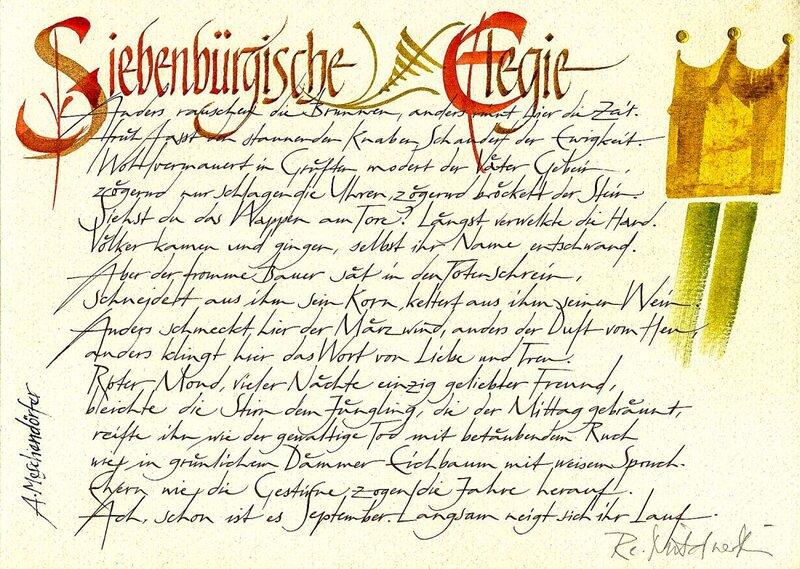 Siebenbürgische Elegie
Anders rauschen die Brunnen, anders rinnt hier die Zeit.
Früh fasst den staunenden Knaben Schauder der Ewigkeit.
Wohlvermauert in Grüften modert der Väter Gebein,
zögernd nur schlagen die Uhren, zögernd bröckelt der Stein.
Siehst du das Wappen am Tore? Längst verwelkte die Hand.
Völker kamen und gingen, selbst ihr Name entschwand.
Aber der fromme Bauer sät in den Totenschrein,
schneidet aus ihm sein Korn, keltert aus ihm seinen Wein.
Anders schmeckt hier der Märzwind, anders der Duft vom Heu,
anders klingt hier das Wort von Liebe und Treu.
Roter Mond, vieler Nächte einzig geliebter Freund,
bleichte die Stirn dem Jüngling, die der Mittag gebräunt,
reifte ihn wie der gewaltige Tod mit betäubendem Ruch
wie in grünlichem Dämmer Eichbaum mit weisem Spruch.
Ehern wie die Gestirne zogen die Jahre herauf.
Ach, schon ist es September. Langsam neigt sich ihr Lauf.
A. Meschendörfer